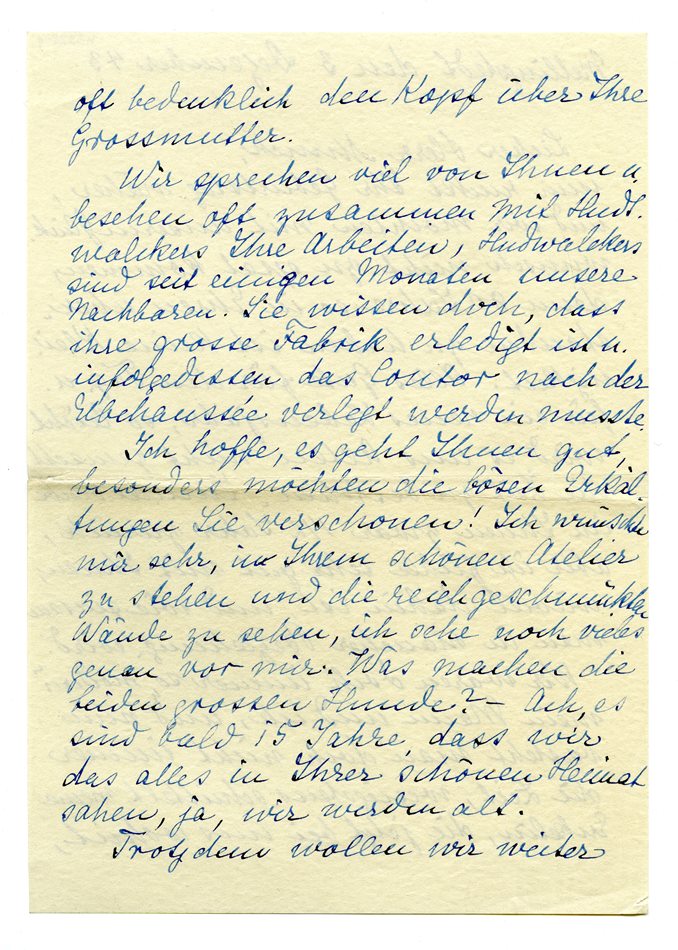 oft bedenklich den Kopf über Ihre
Grossmutter.
Wir sprechen viel von Ihnen u.
besehen oft zusammen mit Hudt-
walckers Ihre Arbeiten, Hudwalckers
sind seit einigen Monaten unsere
Nachbaren. Sie wissen doch, dass
ihre grosse Fabrik erledigt ist u.
infolgedessen das Contor nach der
Elbchaussée verlegt werden musste.
Ich hoffe, es geht Ihnen gut,
besonders möchten die bösen Erkäl-
tungen Sie verschonen! Ich wünschte
mir sehr, in Ihrem schönen Atelier
zu stehen und die reichgeschmückten
Wände zu sehen, ich sehe noch vieles
genau vor mir. Was machen die
beiden grossen Hunde? – Ach, es
sind bald 15 Jahre, dass wir
das alles in Ihrer schönen Heimat
sahen, ja, wir werden alt.
Trotzdem wollen wir weiter